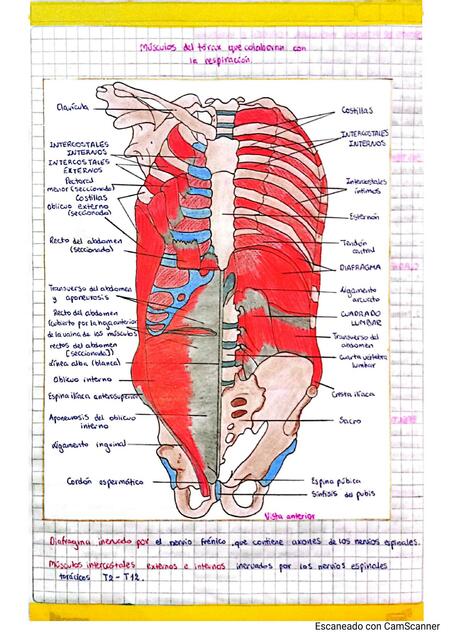 Músculos del tórax que colaboran con
la respiración.
Clavícula
INTERCOSTALES
INTERNOS
INTERCOSTALES
EXTERNOS
Pectoral
menor (seccionado)
Costillas
Oblicuo externo
(seccionado)
Recto del abdomen
(seccionado)
Transverso del abdomen
y aponeurosis
Recto del abdomen
(cubierto por la hoja anterior
de la vaina de los músculos
rectos del abdomen
[seccionada])
Línea alba (blanca)
Oblicuo interno
Espina ilíaca anterosuperior
Aponeurosis del oblicuo
interno
Ligamento inguinal
Cordón espermático
Costillas
INTERCOSTALES
INTERNOS
Intercostales
íntimos
Esternón
Tendón
central
DIAFRAGMA
Ligamento
arcuato
CUADRADO
LUMBAR
Transverso del
abdomen
Cuarta vértebra
lumbar
Cresta ilíaca
Sacro
Espina púbica
Sínfisis del pubis
Vista anterior
Diafragma inervado por el nervio frénico, que contiene axones de los nervios espinales.
Músculos intercostales externos e internos inervados por los nervios espinales
torácicos T2-T12.
Escaneado con CamScanner